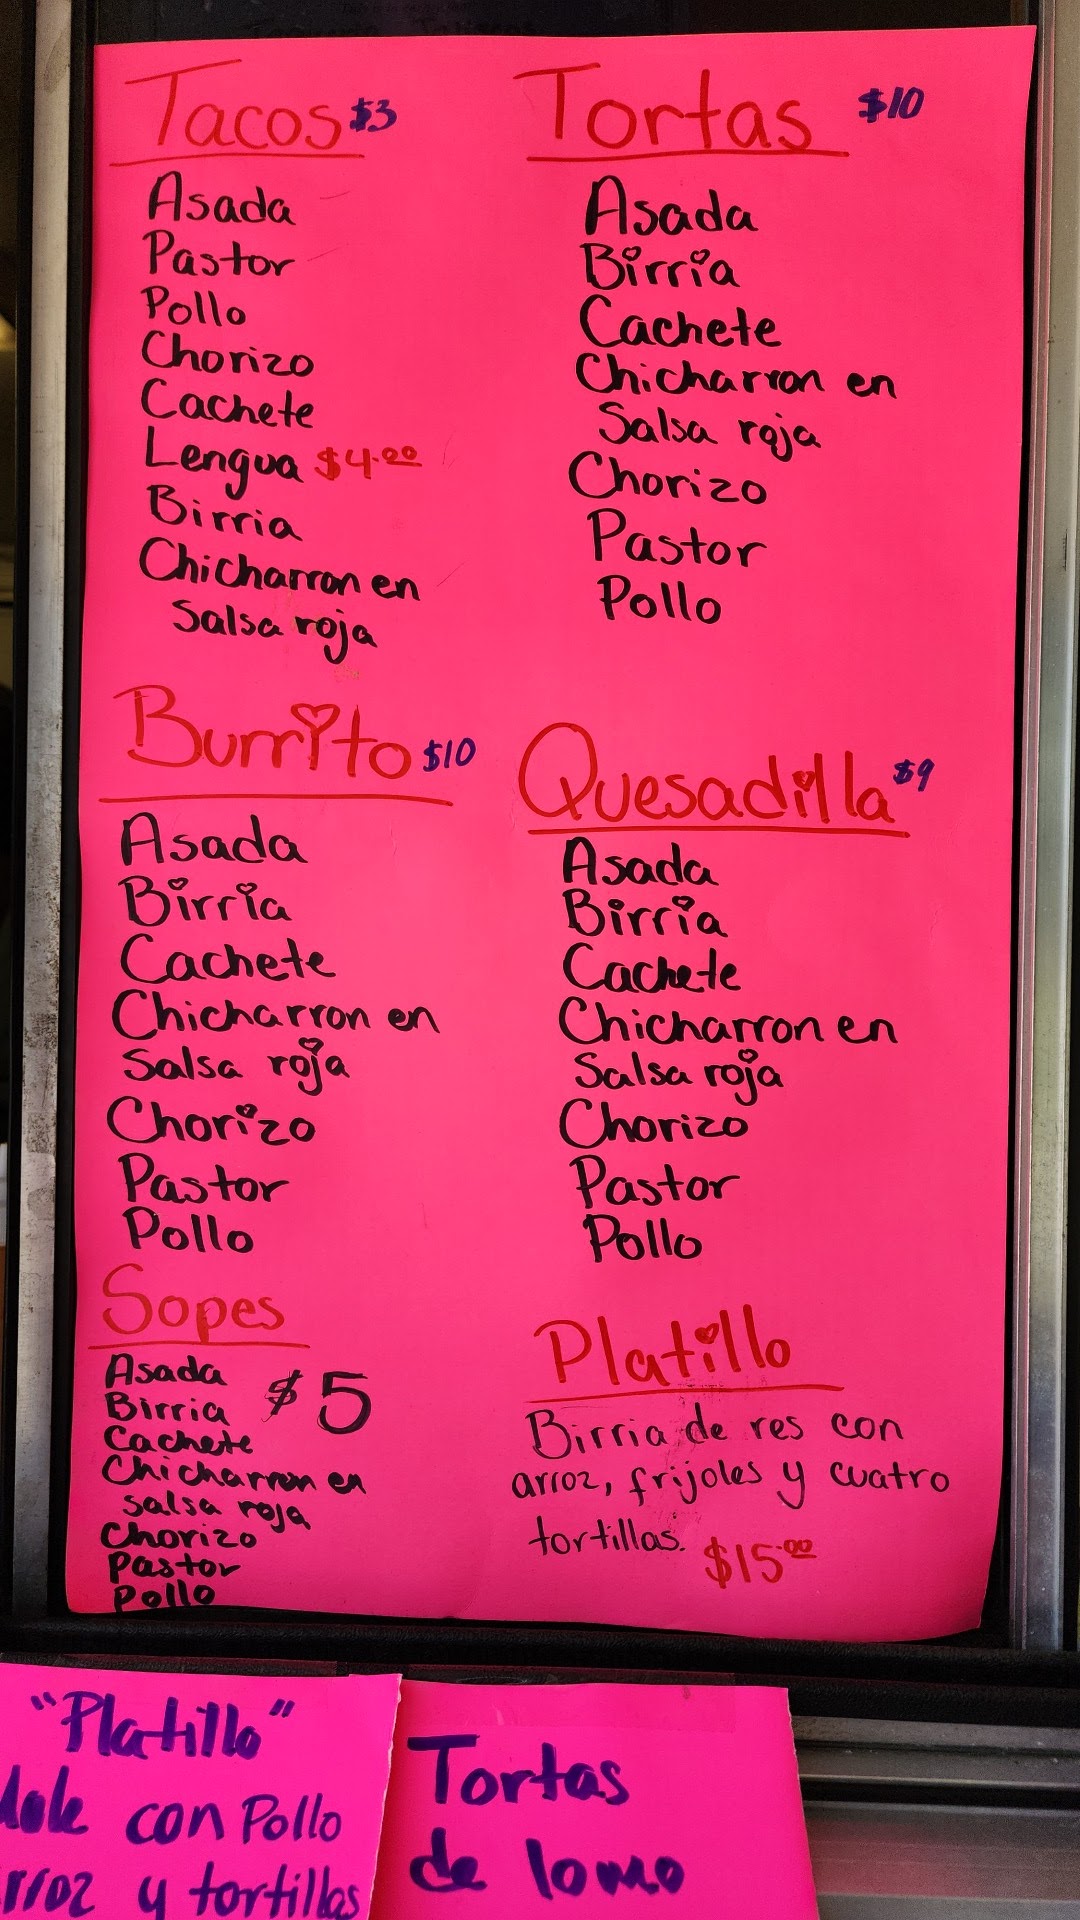 Tacos $3
Asada
Pastor
Pollo
Chorizo
Cachete
Lengua $4.00
Birria
Chicharron en
Salsa roja
Tortas $10
Asada
Birria
Cachete
Chicharron en
Salsa roja
Chorizo
Pastor
Pollo
Burrito $10
Asada
Birria
Cachete
Chicharron en
Salsa roja
Chorizo
Pastor
Pollo
Quesadilla $9
Asada
Birria
Cachete
Chicharron en
Salsa roja
Chorizo
Pastor
Pollo
Sopes
$5
Asada
Birria
Cachete
Chicharron en
salsa roja
Chorizo
Pastor
Pollo
Platillo
Birria de res con
arroz, frijoles y cuatro
tortillas. $15.00
"Platillo"
con Pollo
y tortillas
Tortas
de lomo